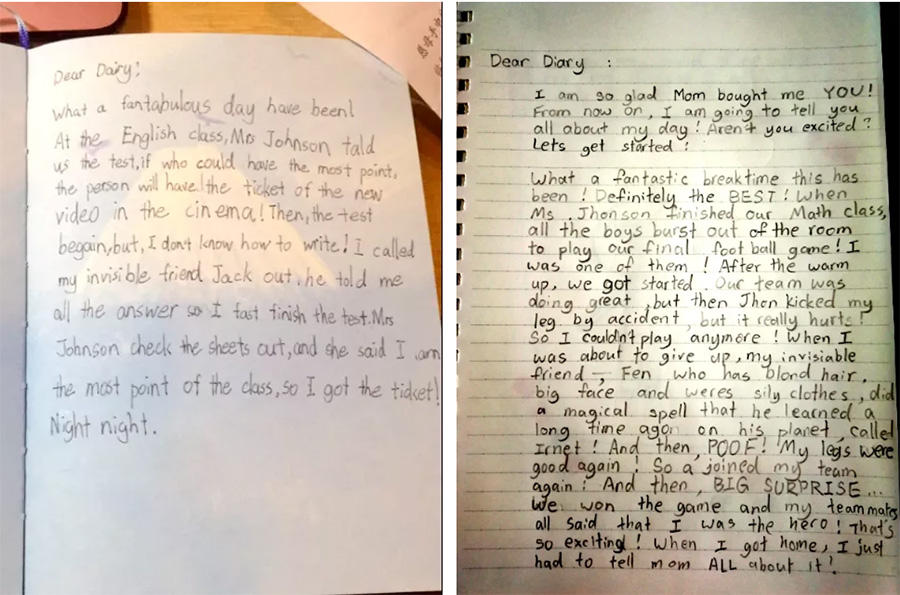 Dear Dairy!
What a fantabulous day have been!
At the English class, Mrs Johnson talld
us the test, if who could have the most point,
the person will have! the ticket of the new
video in the cinema! Then, the test
begain, but, I don't know how to write! I called
my invisible friend Jack out, he told me
all the answer so I fast finish the test. Mrs
Johnson check the sheets out, and she said I am
the most point of the class, so I got the ticket!
Night night.
Dear Diary :
I am so glad Mom bought me YOU!
From now on, I am going to tell you
all about my day! Aren't you excited?
Lets get started!
What a fantastic breaktime this has
been! Definitely the BEST! When
Ms. Jhonson finished our Math class,
all the boys burst out of the room
to play our final football game! I
was one of them! After the warm
up, we got started. Our team was
doing great, but then Jhon kicked my
leg by accident, but it really hurts!
So I couldn't play anymore! When I
was about to give up, my invisiable
friend -, Fen who has blond hair,
big face and weres sily clothes, did
a magical spell that he learned a
long time agon on his planet, called
Irnet! And then, POOF! My legs were
good again! So a joined my team
again! And then, BIG SURPRISE...
We won the game and my teammates
all said that I was the hero! That's
so exciting! When I got home, I just
had to tell mom ALL about it!